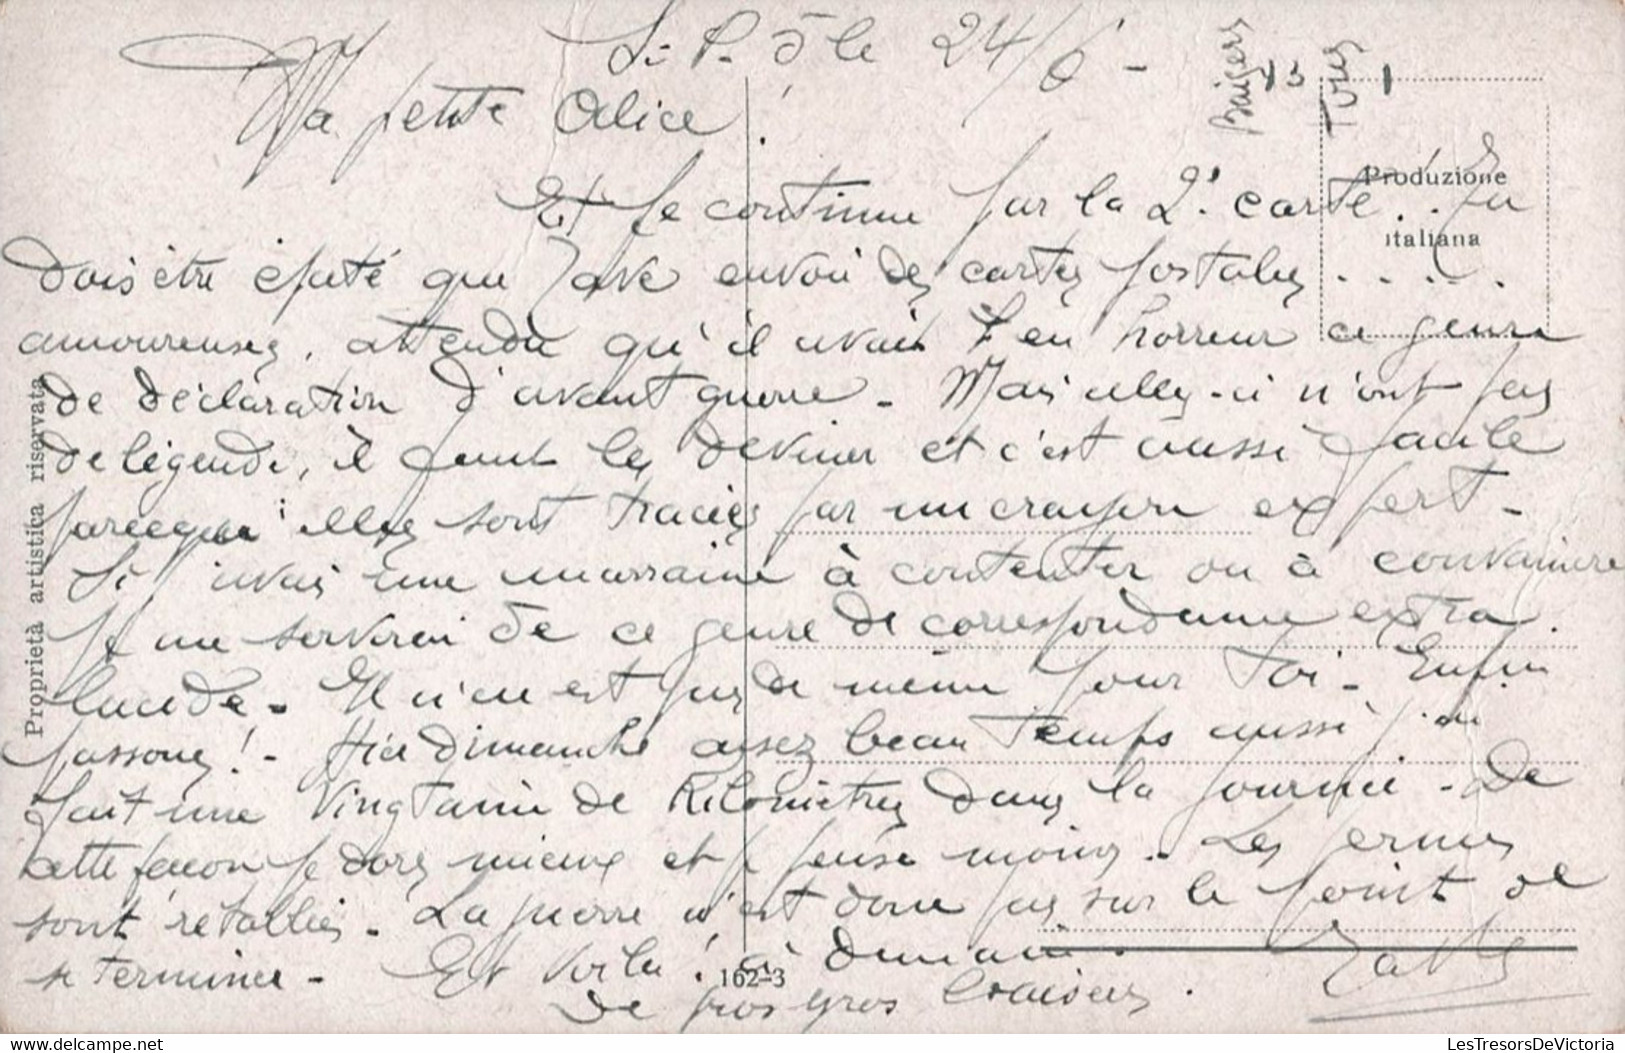 le 24/6 -
Baisers
Tures
Ma petite Alice !
Et je continue par la 2e carte.. Tu
dois être épaté que Jake envoie des cartes postales . . . . .
amoureuses, attendu qu'il avait en horreur ce genre
de déclaration d'avant guerre - Mais celles-ci n'ont pas
de légende, il faut les deviner et c'est aussi facile
parceque elles sont tracées par un crayon expert -
Si j'avais une marraine à contenter ou à convaincre
je me servirai de ce genre de correspondance extra
lucide - Il n'en est pas de même pour toi - Enfin
passons ! - Hier dimanche assez beau temps aussi j'ai
fait une vingtaine de kilomètres dans la journée - De
cette façon je dors mieux et je pense moins - Les permes
sont rétablies - La guerre n'est donc pas sur le point de
se terminer - Et voilà ! à demain.
De gros gros baisers .
Produzione
italiana
Proprietà artistica riservata
162-3
LesTresorsDeVictoria